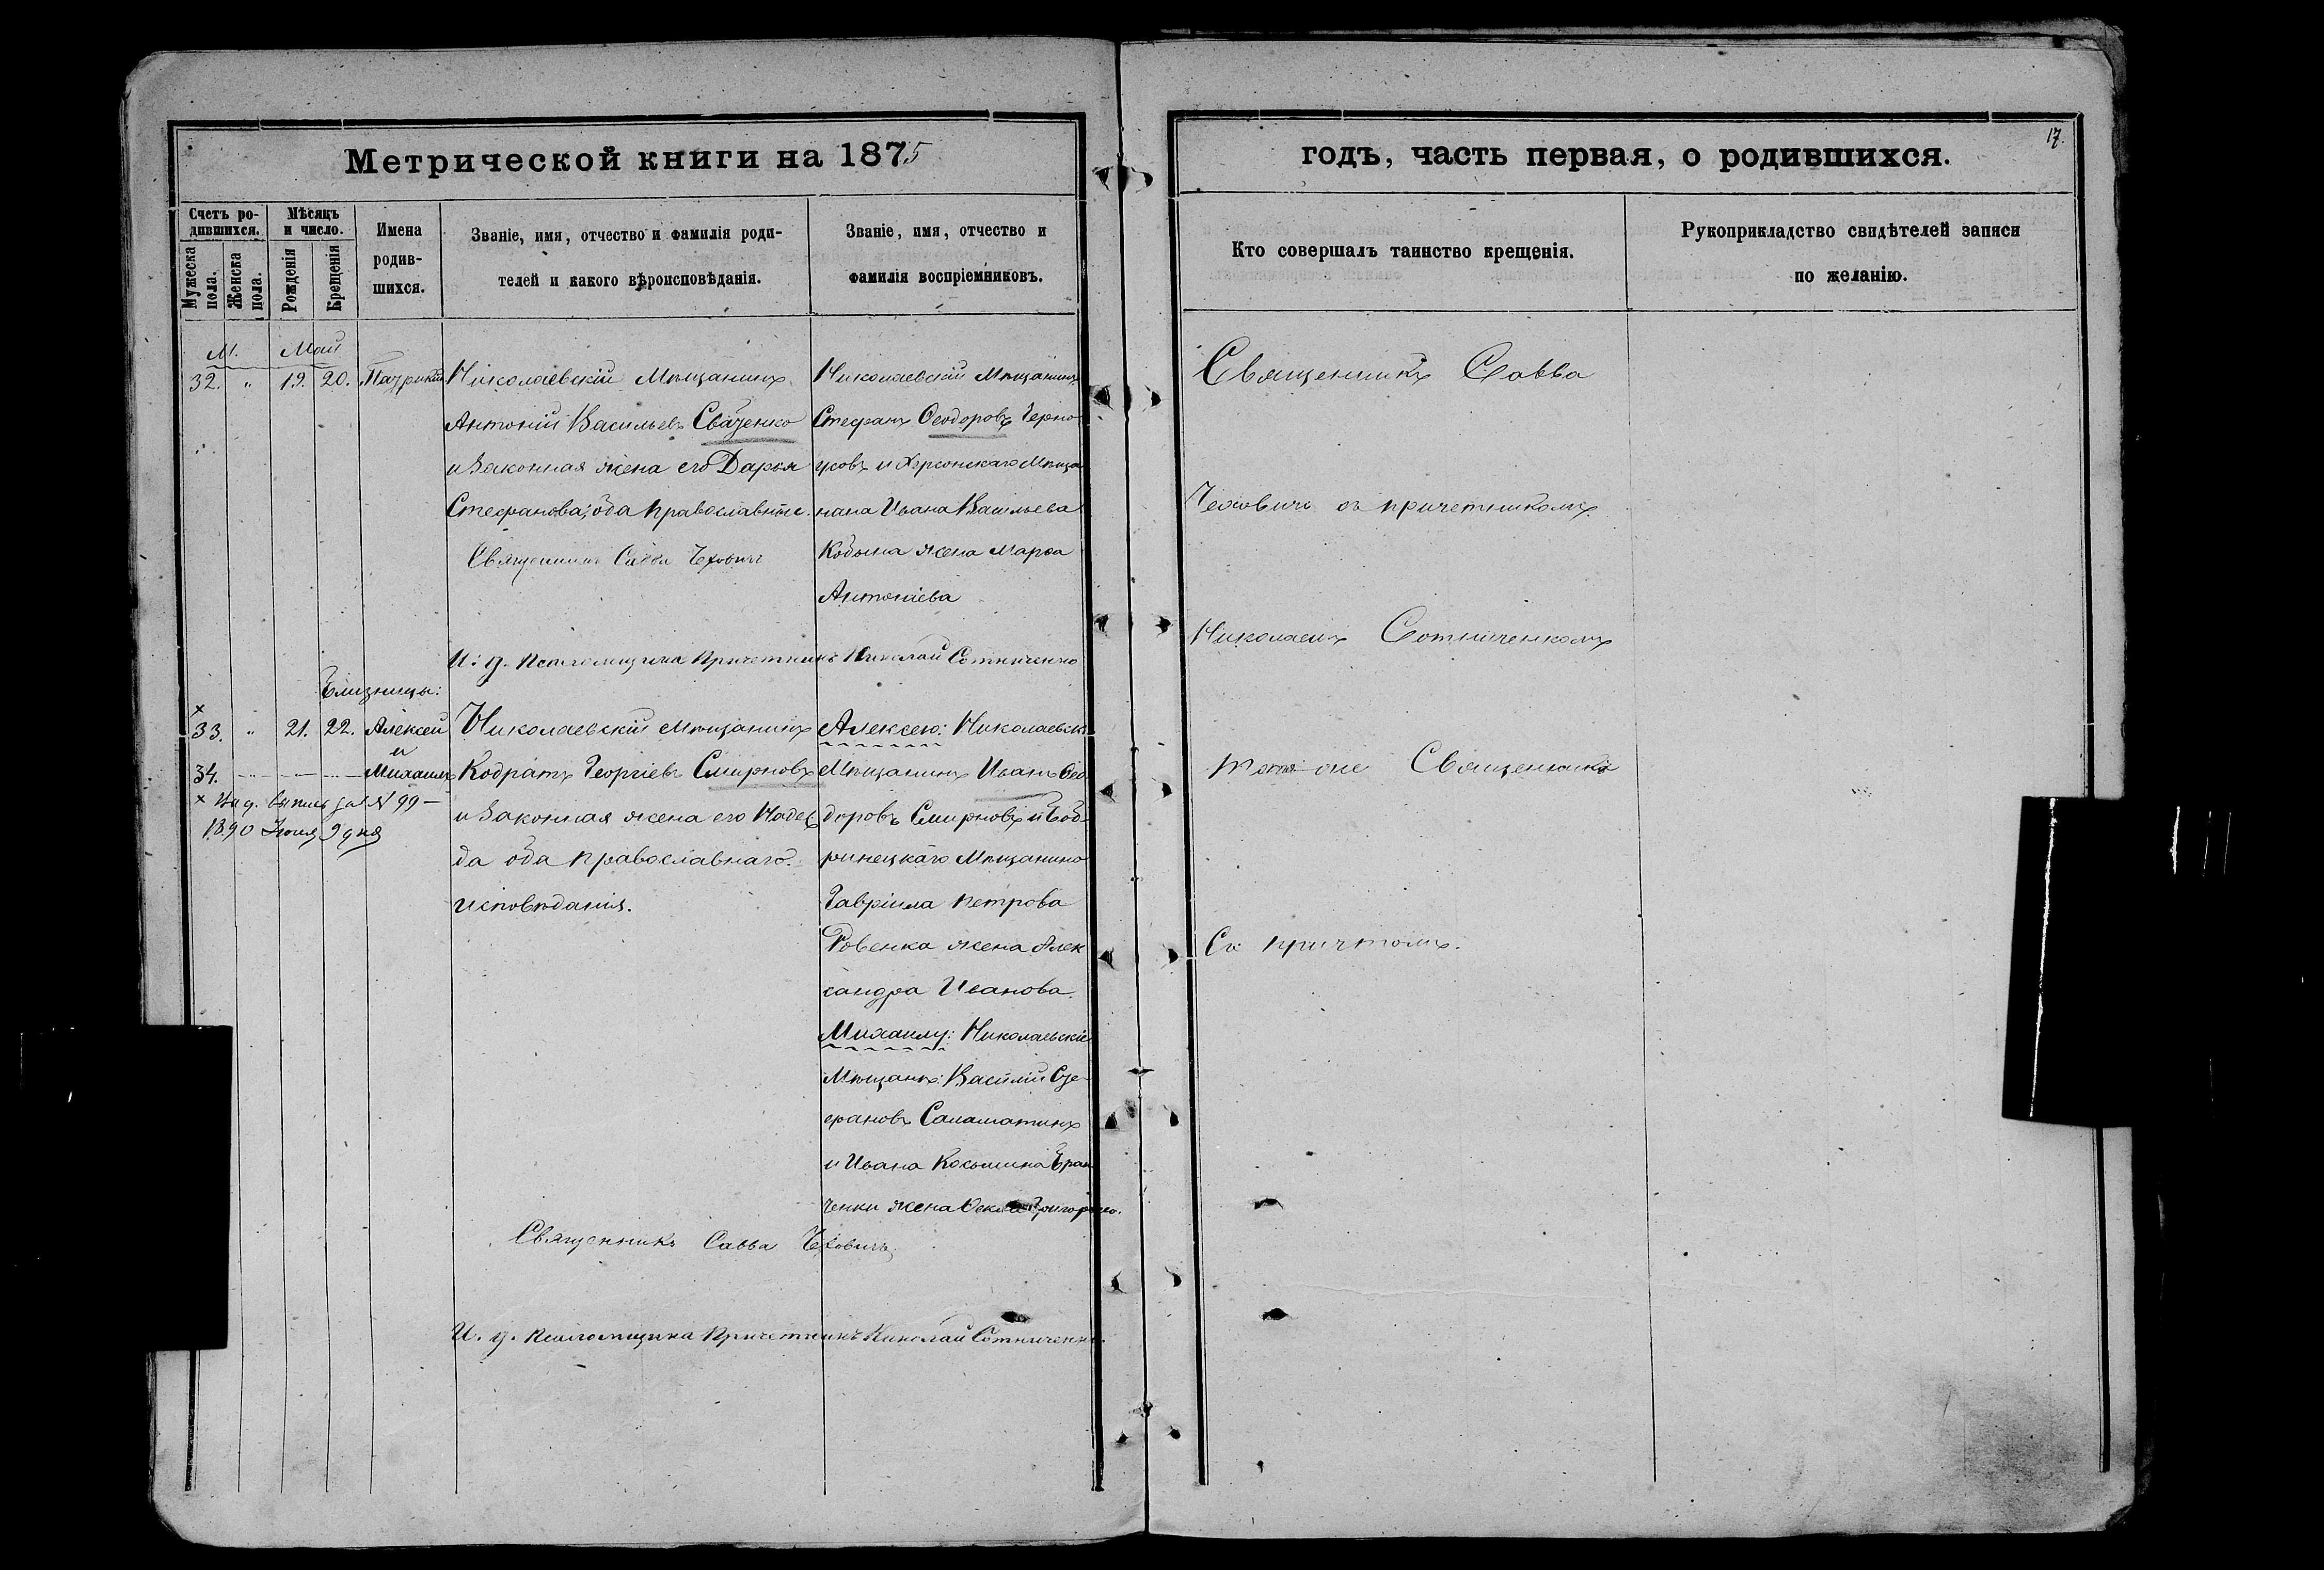 Метрической книги на 1875
годъ, часть первая, о родившихся.
17.
Счетъ ро-
дившихся.
Мужеска пола.
Женска пола.
Мѣсяцъ
и число.
Рожденія
Крещенія
Имена
родив-
шихся.
Званіе, имя, отчество и фамилія роди-
телей и какого вѣроисповѣданія.
Званіе, имя, отчество и
фамилія воспріемниковъ.
Кто совершалъ таинство крещенія.
Рукоприкладство свидѣтелей записи
по желанію.
М. Май
32. " 19. 20. Патрикій
Николаевскій Мѣщанинъ
Антоній Васильевъ
и Законная жена его Дарья
Стефанова, оба православные.
Священникъ Савва Чеховичъ
Николаевскій Мѣщанинъ
Стефанъ Ѳеодоровъ Черно
усовъ и Херсонскаго Мѣща
нина Ивана Васильева
жена Марѳа
Антоніева
И. д. Псаломщика Причетникъ Николай Сотниченко
Священникъ Савва
Чеховичъ съ причетникомъ
Николаемъ Сотниченкомъ
Близнецы:
33. " 21. 22. Алексей
и
34. Михаилъ
Выд. выпись за № 99 —
1890 Іюня 9 дня
Николаевскій Мѣщанинъ
Кодратъ Георгіевъ Смирновъ
и Законная жена его Надеж
да оба православнаго
исповѣданія.
Алексею: Николаевскій
Мѣщанинъ Иванъ Ѳео
доровъ Смирновъ и Боб-
ринецкаго Мѣщанина
Гавріила Петрова
Ровенка жена Алек
сандра Иванова.
Михаилу: Николаевскіе
Мѣщане: Василій Сте
фановъ Саламатинъ
и Ивана Косьмина
жена
Священникъ Савва Чеховичъ
И. д. Псаломщика Причетникъ Николай Сотниченко.
тотъ же Священникъ
Съ причтомъ.